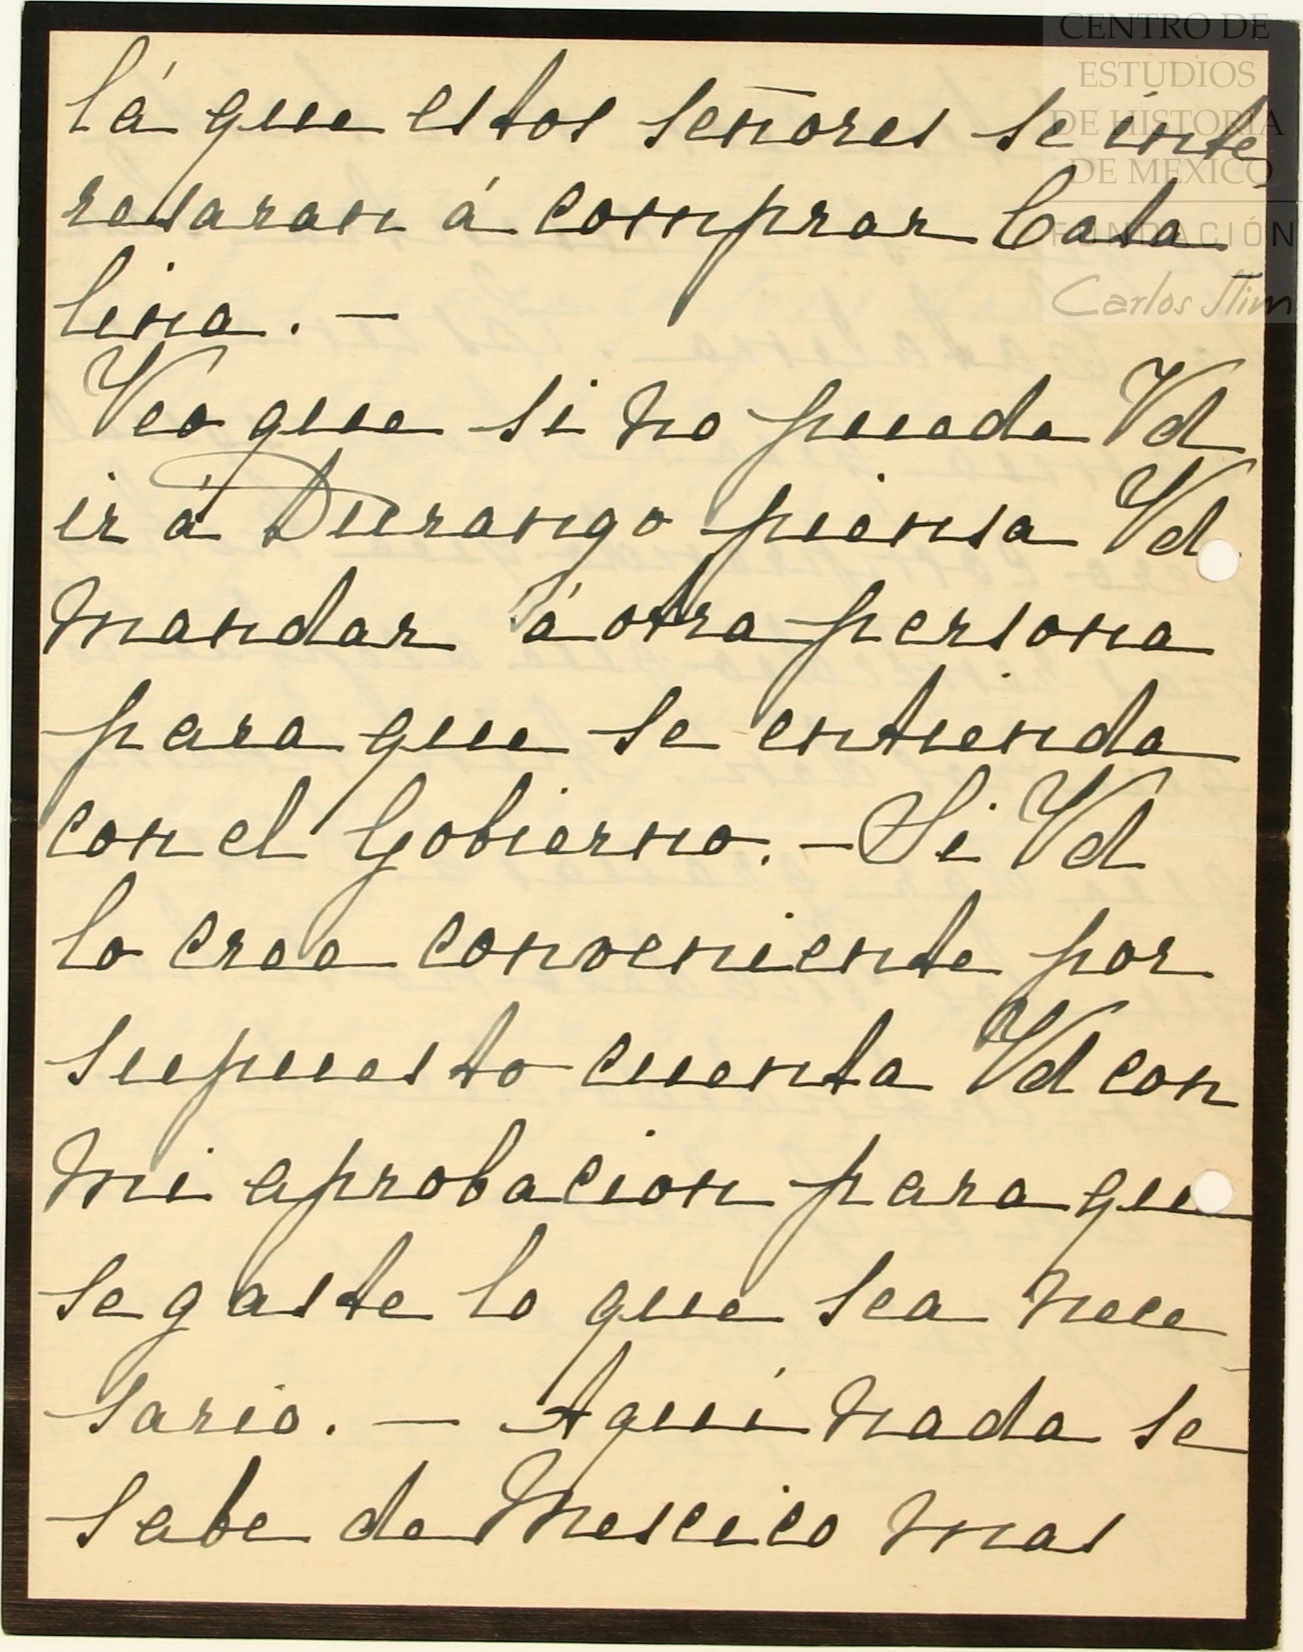 CENTRO DE
ESTUDIOS
DE HISTORIA
DE MEXICO
FUNDACIÓN
Carlos Slim
lá que estos señores se inte
resaran á comprar Cata
lina. —
Veo que si no puede Vd
ir á Durango piensa Vd
mandar á otra persona
para que se entienda
con el Gobierno. — Si Vd
lo cree conveniente por
supuesto cuenta Vd con
mi aprobacion para que
se gaste lo que sea nece
sario. — Aquí nada se
sabe de Mescico mas